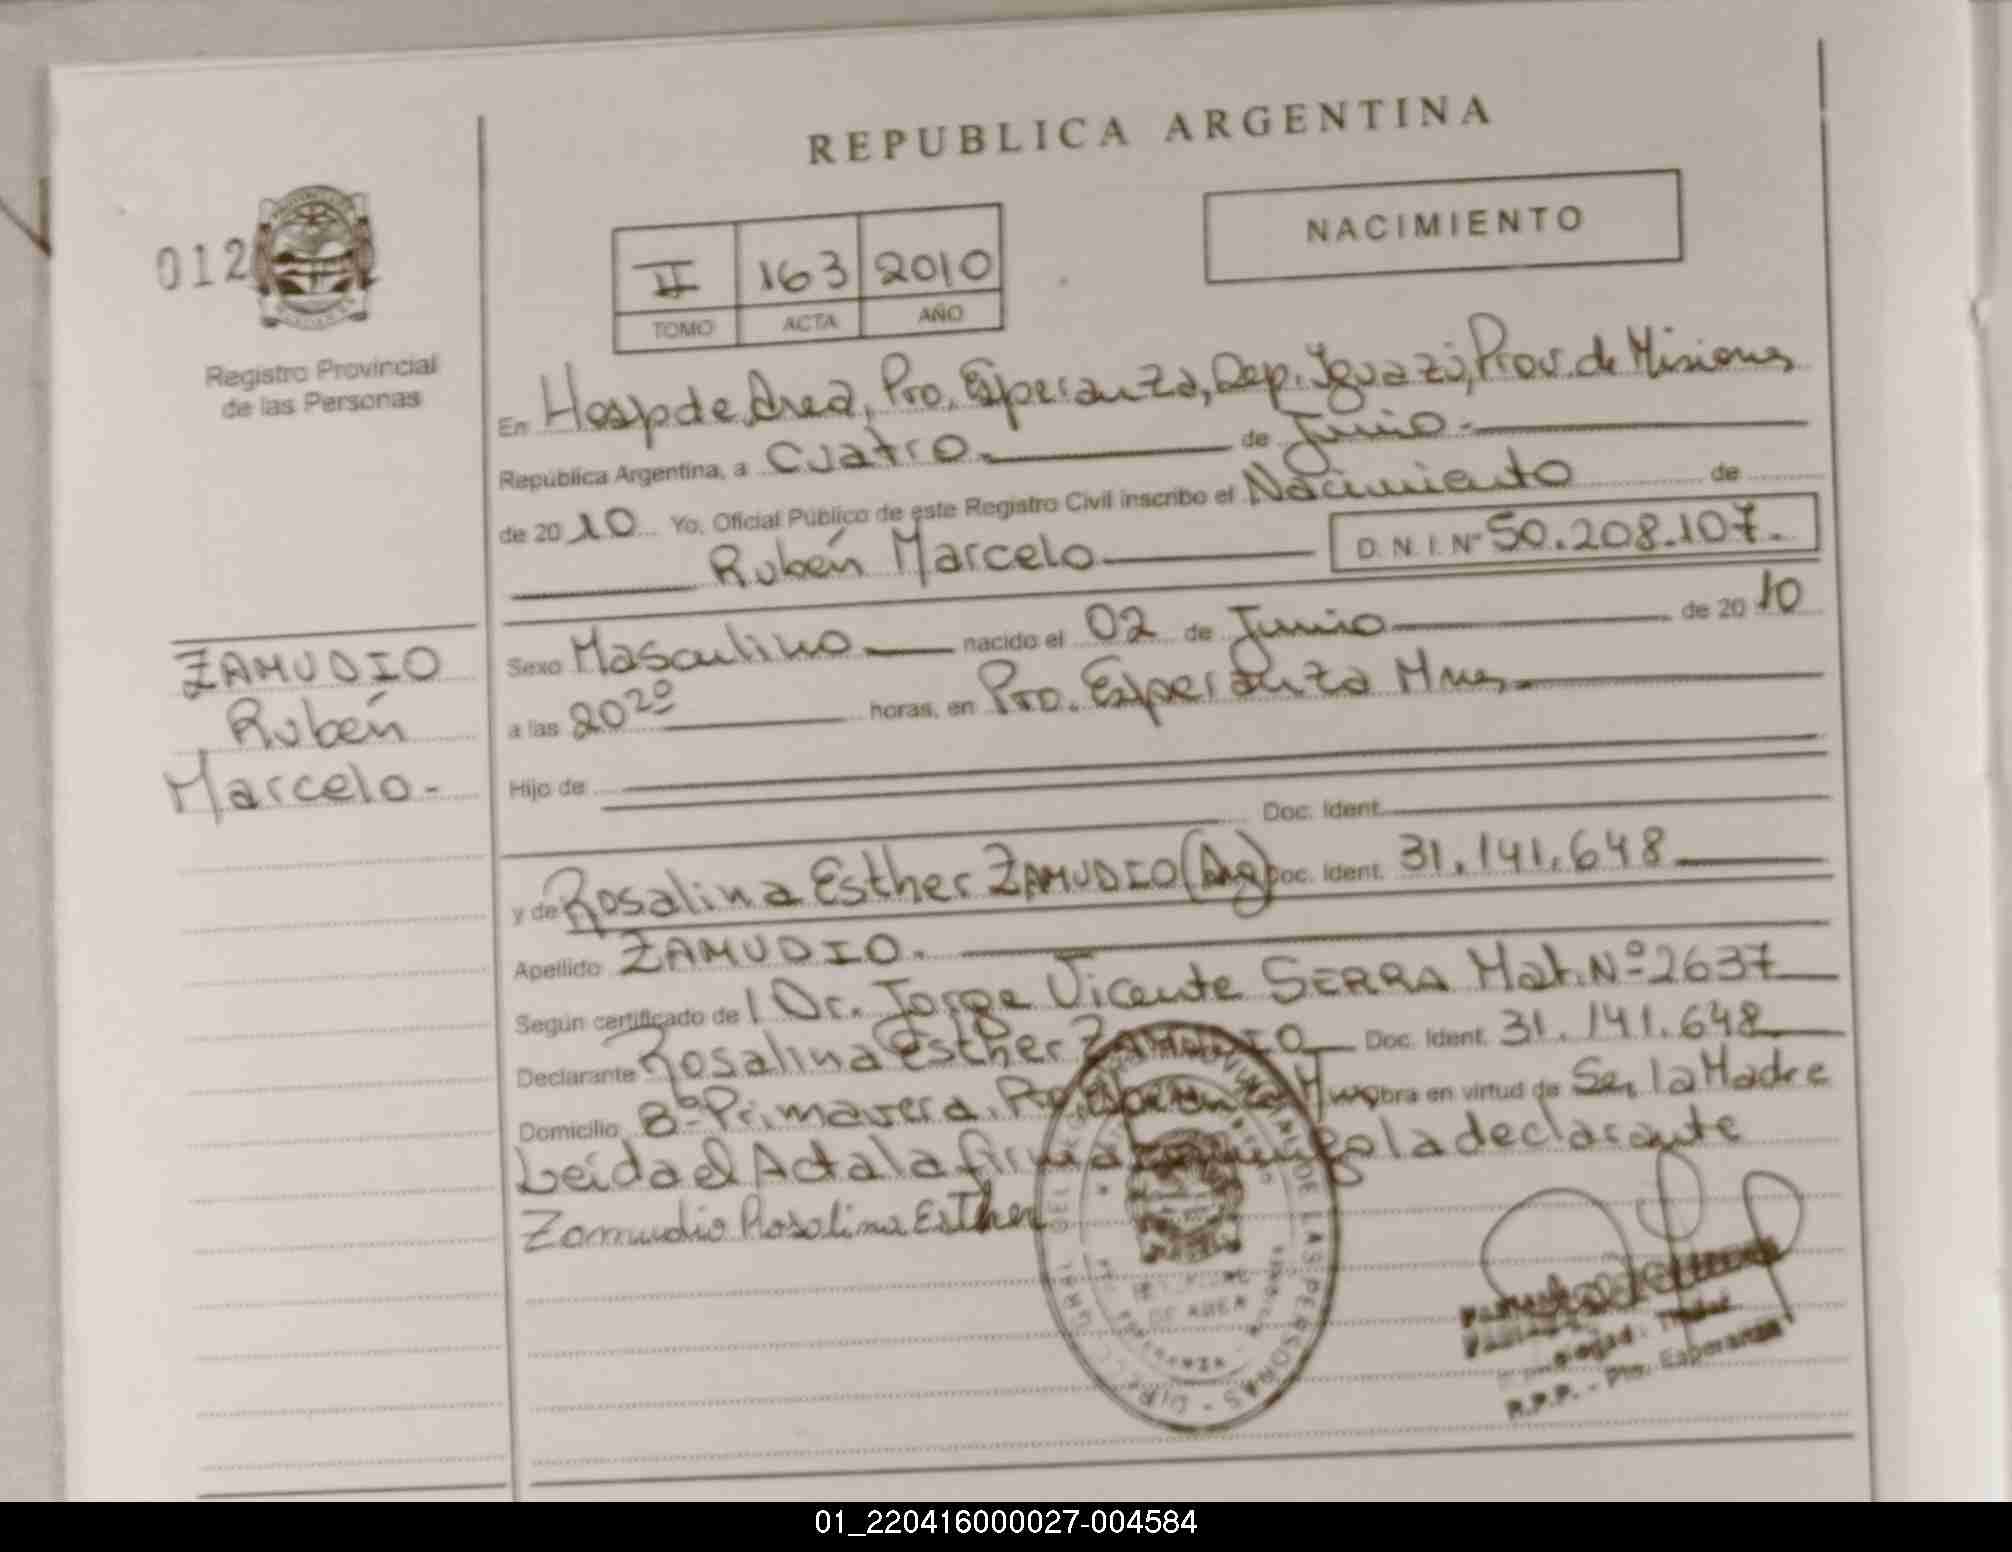 REPUBLICA ARGENTINA
NACIMIENTO
012
II 163 2010
TOMO ACTA AÑO
Registro Provincial
de las Personas
En Hosp de Area, Pto. Esperanza, Dep. Iguazú, Prov. de Misiones
República Argentina, a cuatro de Junio.
de 2010 Yo, Oficial Público de este Registro Civil inscribo el Nacimiento de
Rubén Marcelo D.N.I. Nº 50.208.107.
ZAMUDIO
Rubén
Marcelo.-
Sexo Masculino nacido el 02 de Junio de 2010
a las 20²⁰ horas, en Pto. Esperanza Mnes.
Hijo de
Doc. Ident.
y de Rosalina Esther ZAMUDIO (Arg) Doc. Ident. 31.141.648
Apellido ZAMUDIO.
Según certificado de l Dr. Jorge Vicente SERRA Mat. Nº 2637
Declarante Rosalina Esther ZAMUDIO Doc. Ident. 31.141.648
Domicilio Bº Primavera. Pto. Esperanza Mnes Obra en virtud de Ser la Madre
Leída el Acta la firma conmigo la declarante
Zamudio Rosalina Esther
DE LAS PERSONAS - DIREC. GRAL.
DE AREA
R.P.P. - Pto. Esperanza
01_220416000027-004584